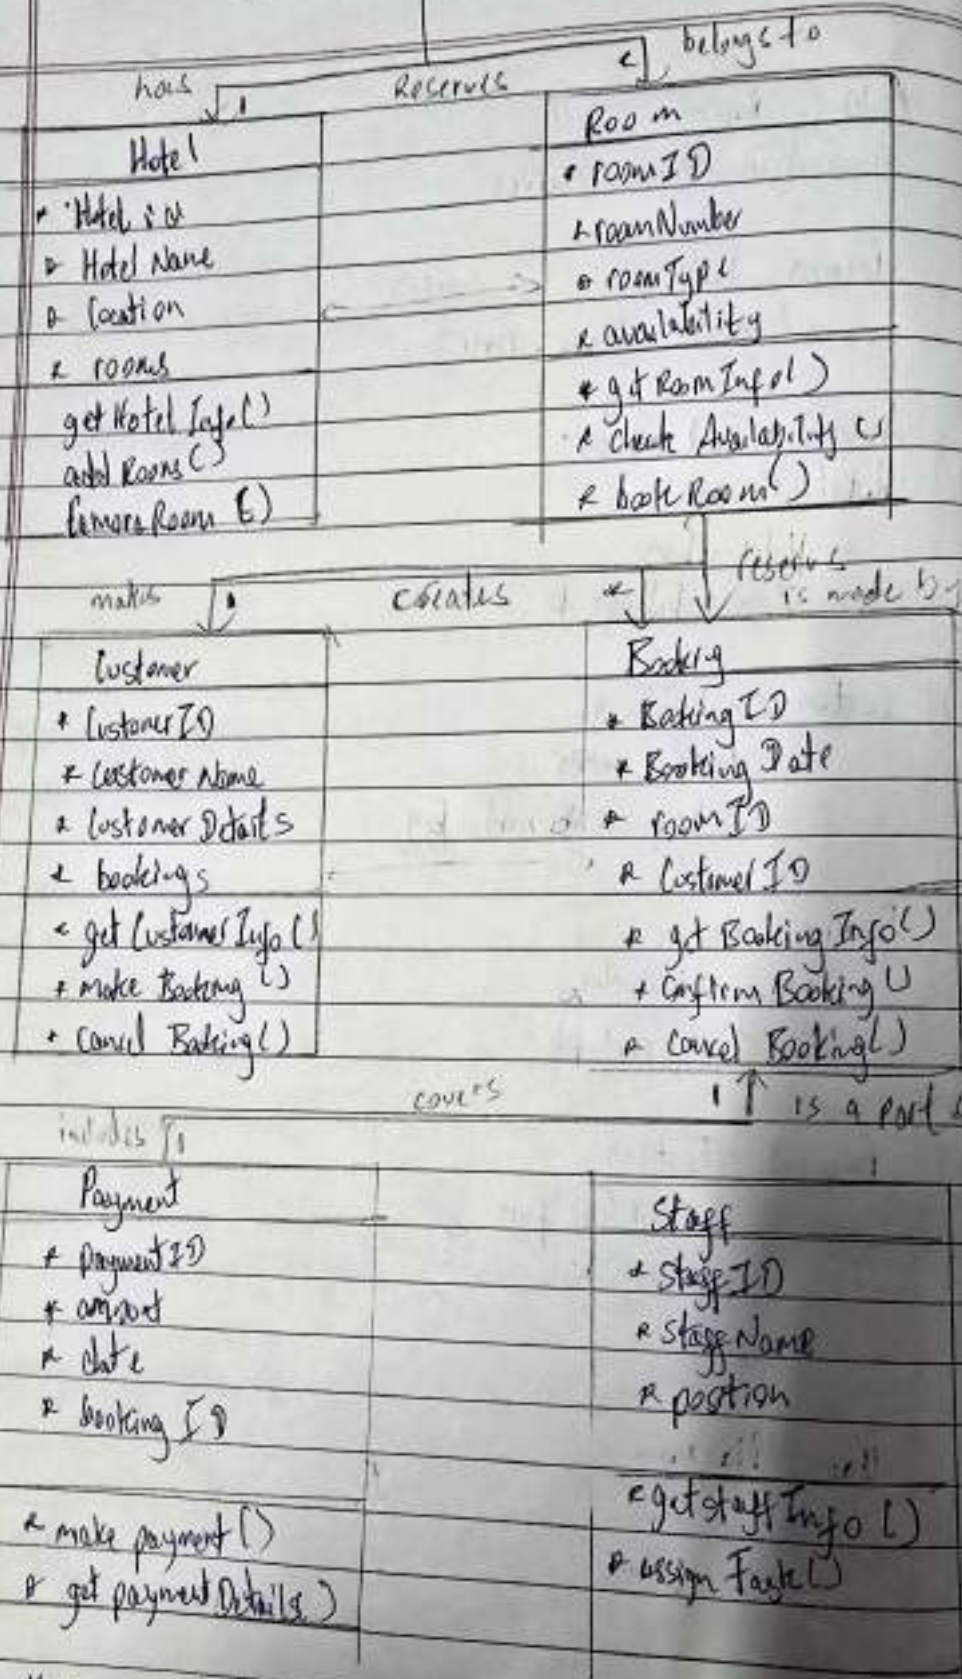 has
Reserves
belongs to
1
Hotel
* Hotel id
* Hotel Name
* location
* rooms
getHotel Info()
add Rooms()
Room
* roomID
* roomNumber
* roomType
* availability
* getRoomInfo()
* check Availability()
* bookRoom()
makes
1
creates
*
reserves
is made by
Customer
* CustomerID
* Customer Name
* Customer Details
* bookings
* get CustomerInfo()
* make Booking()
* Cancel Booking()
Booking
* Booking ID
* Booking Date
* roomID
* CustomerID
* get Booking Info()
* Confirm Booking()
* Cancel Booking()
includes
1
covers
1
is a part
Payment
* paymentID
* amount
* date
* booking ID
* make payment()
* get paymentDetails()
Staff
* StaffID
* StaffName
* position
* getstaffInfo()
* assign Task()